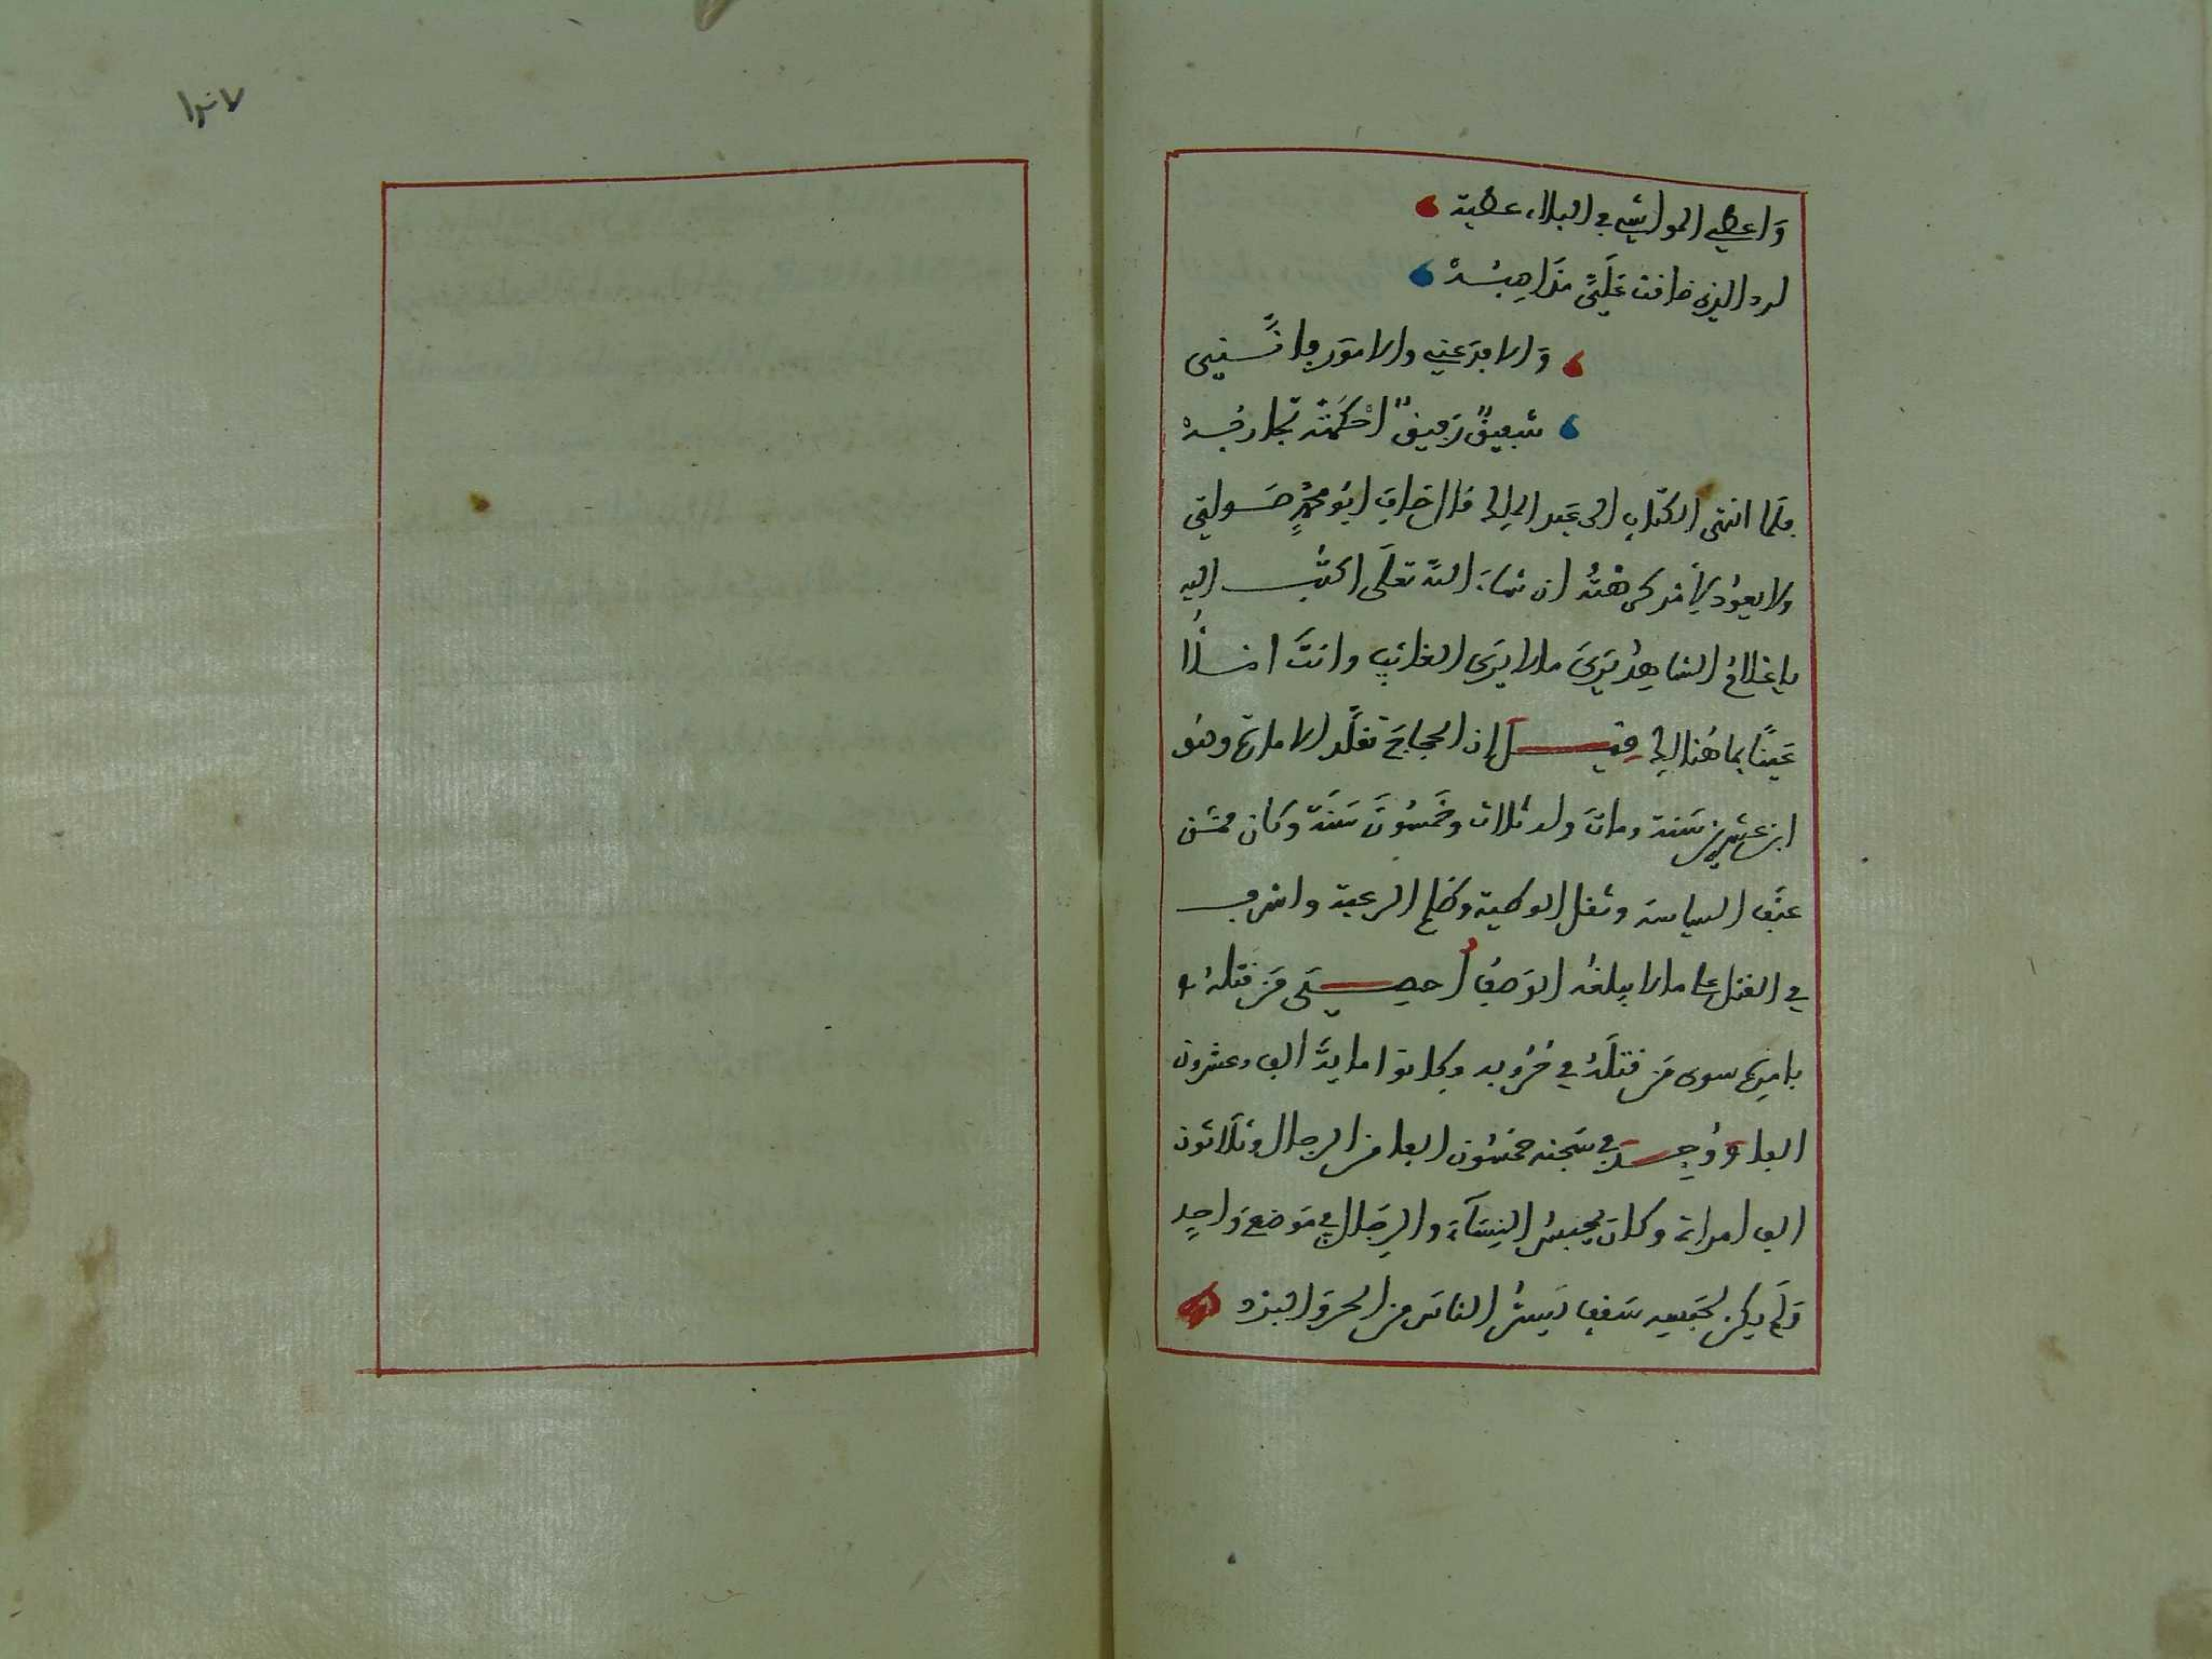 وَاعطي المواشي في البلاء عطية
لرد الذي ضاقت عَلَىَّ مَذَاهِبُهْ
وَالا فدَعني والامور فاننى
شفيقٌ رَفيقٌ احْكَمَتْهُ تجاربُهْ
فلَما انتهى الكتاب الى عَبد الملك قال خاف ابُو محمدٍ صَولتي
ولا يعوُد لأمْر كرهْتُه ان شاءَ الله تعلَى اكتُب اليه
ياغلامُ الشاهِدُ يَرىَ مالا يَرَى الغائب وانتَ
عَينًا بما هُنالك قيل إن الحجاجَ تقلَّد الامارة وهُو
ابن عشرين سَنة وماتَ وله ثلاث وخَمسُونَ سَنَة وكان ممَّن
عنَّف السياسة وثقل الوطية وظلم الرعية واسرف
في القتل على مالا يبلغه الوَصفُ أحصى مَن قتلهُ
بامرِه سوى مَن قتلَهُ في حُرُوبه فكانوا ماية الف وعشرون
الفا وَوُجِد في سَجنه خمسُون الفا من الرجال وثلاثون
الف امراة وكان يحبسُ النِسَآءَ والرِجَال في مَوضع وَاحِد
وَلم يكن لحَبسِه سَقف يَسترُ الناس من الحر والبرْد